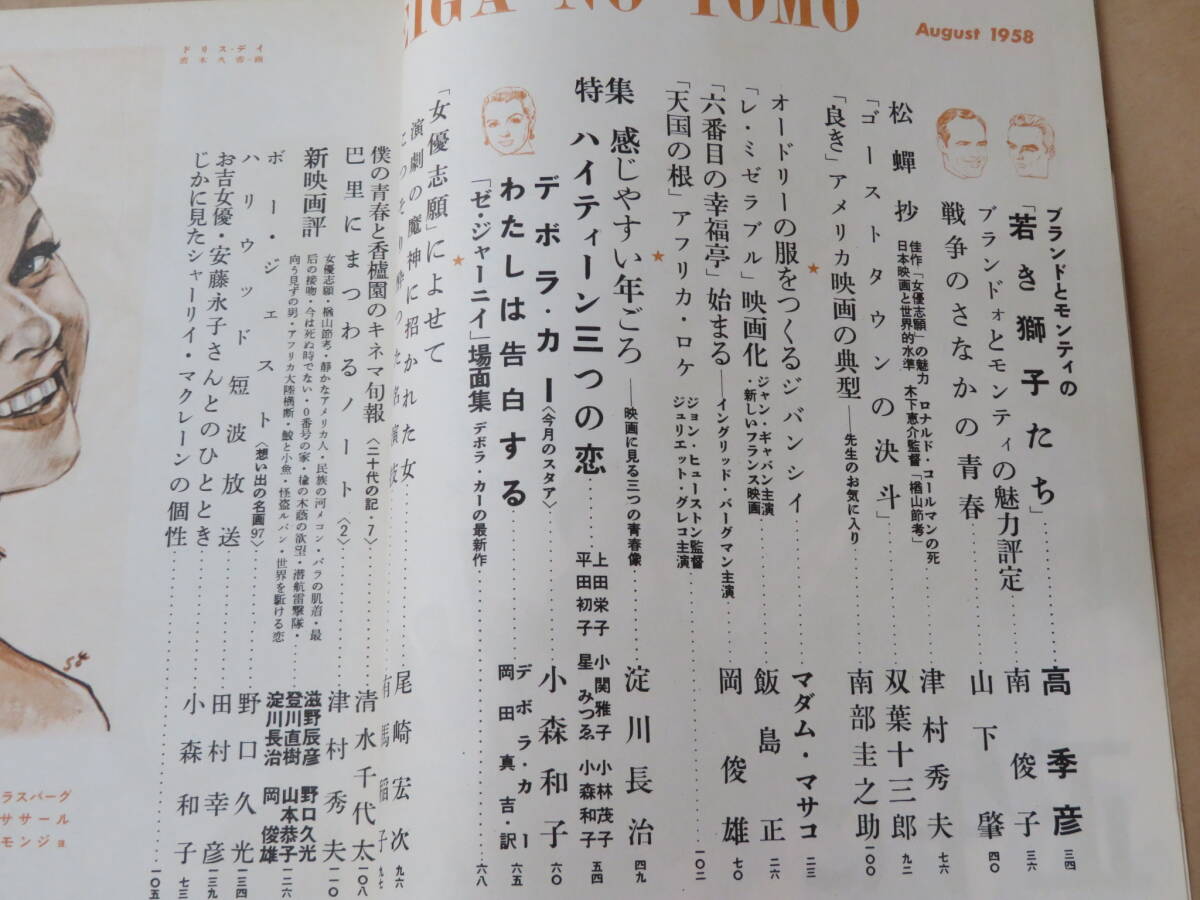 EIGA NO TOMO
August 1958
ブランドとモンティの
「若き獅子たち」 高季彦 三四
ブランドォとモンティの魅力評定 南俊子 三六
戦争のさなかの青春 山下肇 四〇
松蟬抄 佳作「女優志願」の魅力 ロナルド・コールマンの死
日本映画と世界的水準 木下恵介監督「楢山節考」 津村秀夫 七六
「ゴーストタウンの決斗」 双葉十三郎 九二
「良き」アメリカ映画の典型――先生のお気に入り 南部圭之助 一〇〇
★
オードリーの服をつくるジバンシイ マダム・マサコ 二三
「レ・ミゼラブル」映画化 ジャン・ギャバン主演・新しいフランス映画 飯島正 二六
「六番目の幸福亭」始まる――イングリッド・バーグマン主演 岡俊雄 七〇
「天国の根」アフリカ・ロケ ジョン・ヒューストン監督 ジュリエット・グレコ主演 一〇二
★
特集 感じやすい年ごろ――映画に見る三つの青春像 淀川長治 四九
ハイティーン三つの恋 上田栄子 小関雅子 小林茂子
平田初子 星みつゑ 小森和子 五四
デボラ・カー〈今月のスタア〉 小森和子 六〇
わたしは告白する デボラ・カー
岡田真吉・訳 六五
「ゼ・ジャーニイ」場面集 デボラ・カーの最新作 六八
★
「女優志願」によせて
演劇の魔神に招かれた女 尾崎宏次 九六
有馬稲子 九七
僕の青春と香櫨園のキネマ旬報〈二十代の記・7〉 清水千代太 一〇八
巴里にまつわるノート〈2〉 津村秀夫 一一〇
新映画評 女優志願・楢山節考・静かなアメリカ人・民族の河メコン・バラの肌着・最
后の接吻・今は死ぬ時でない・0番号の家・楡の木蔭の欲望・潜航雷撃隊・
向う見ずの男・アフリカ大陸横断・鮫と小魚・怪盗ルパン・世界を駈ける恋
滋野辰彦 野口久光
登川直樹 山本恭子
淀川長治 岡俊雄 一二六
ボー・ジェスト〈想い出の名画97〉 野口久光 一三四
ハリウッド短波放送 田村幸彦 一三九
お吉女優・安藤永子さんとのひととき
じかに見たシャーリイ・マクレーンの個性 小森和子 七三
一〇五
ドリス・デイ
58
ラスバーグ
ササール
モンジョ